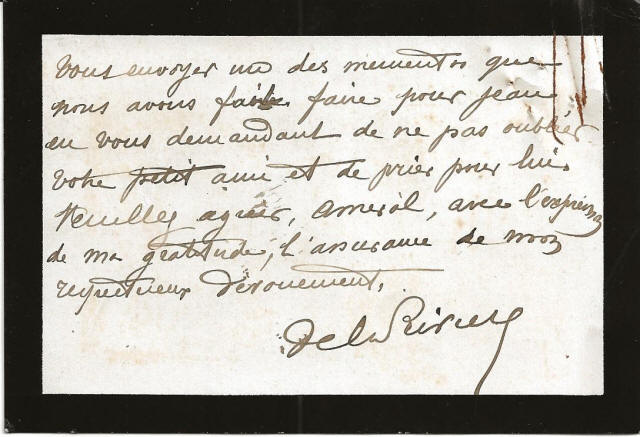 vous envoyer un des mementos que
nous avons fait faire pour Jean
en vous demandant de ne pas oublier
votre petit ami et de prier pour lui.
Veuillez agréer, Amiral, avec l'expression
de ma gratitude, l'assurance de mon
respectueux dévouement.